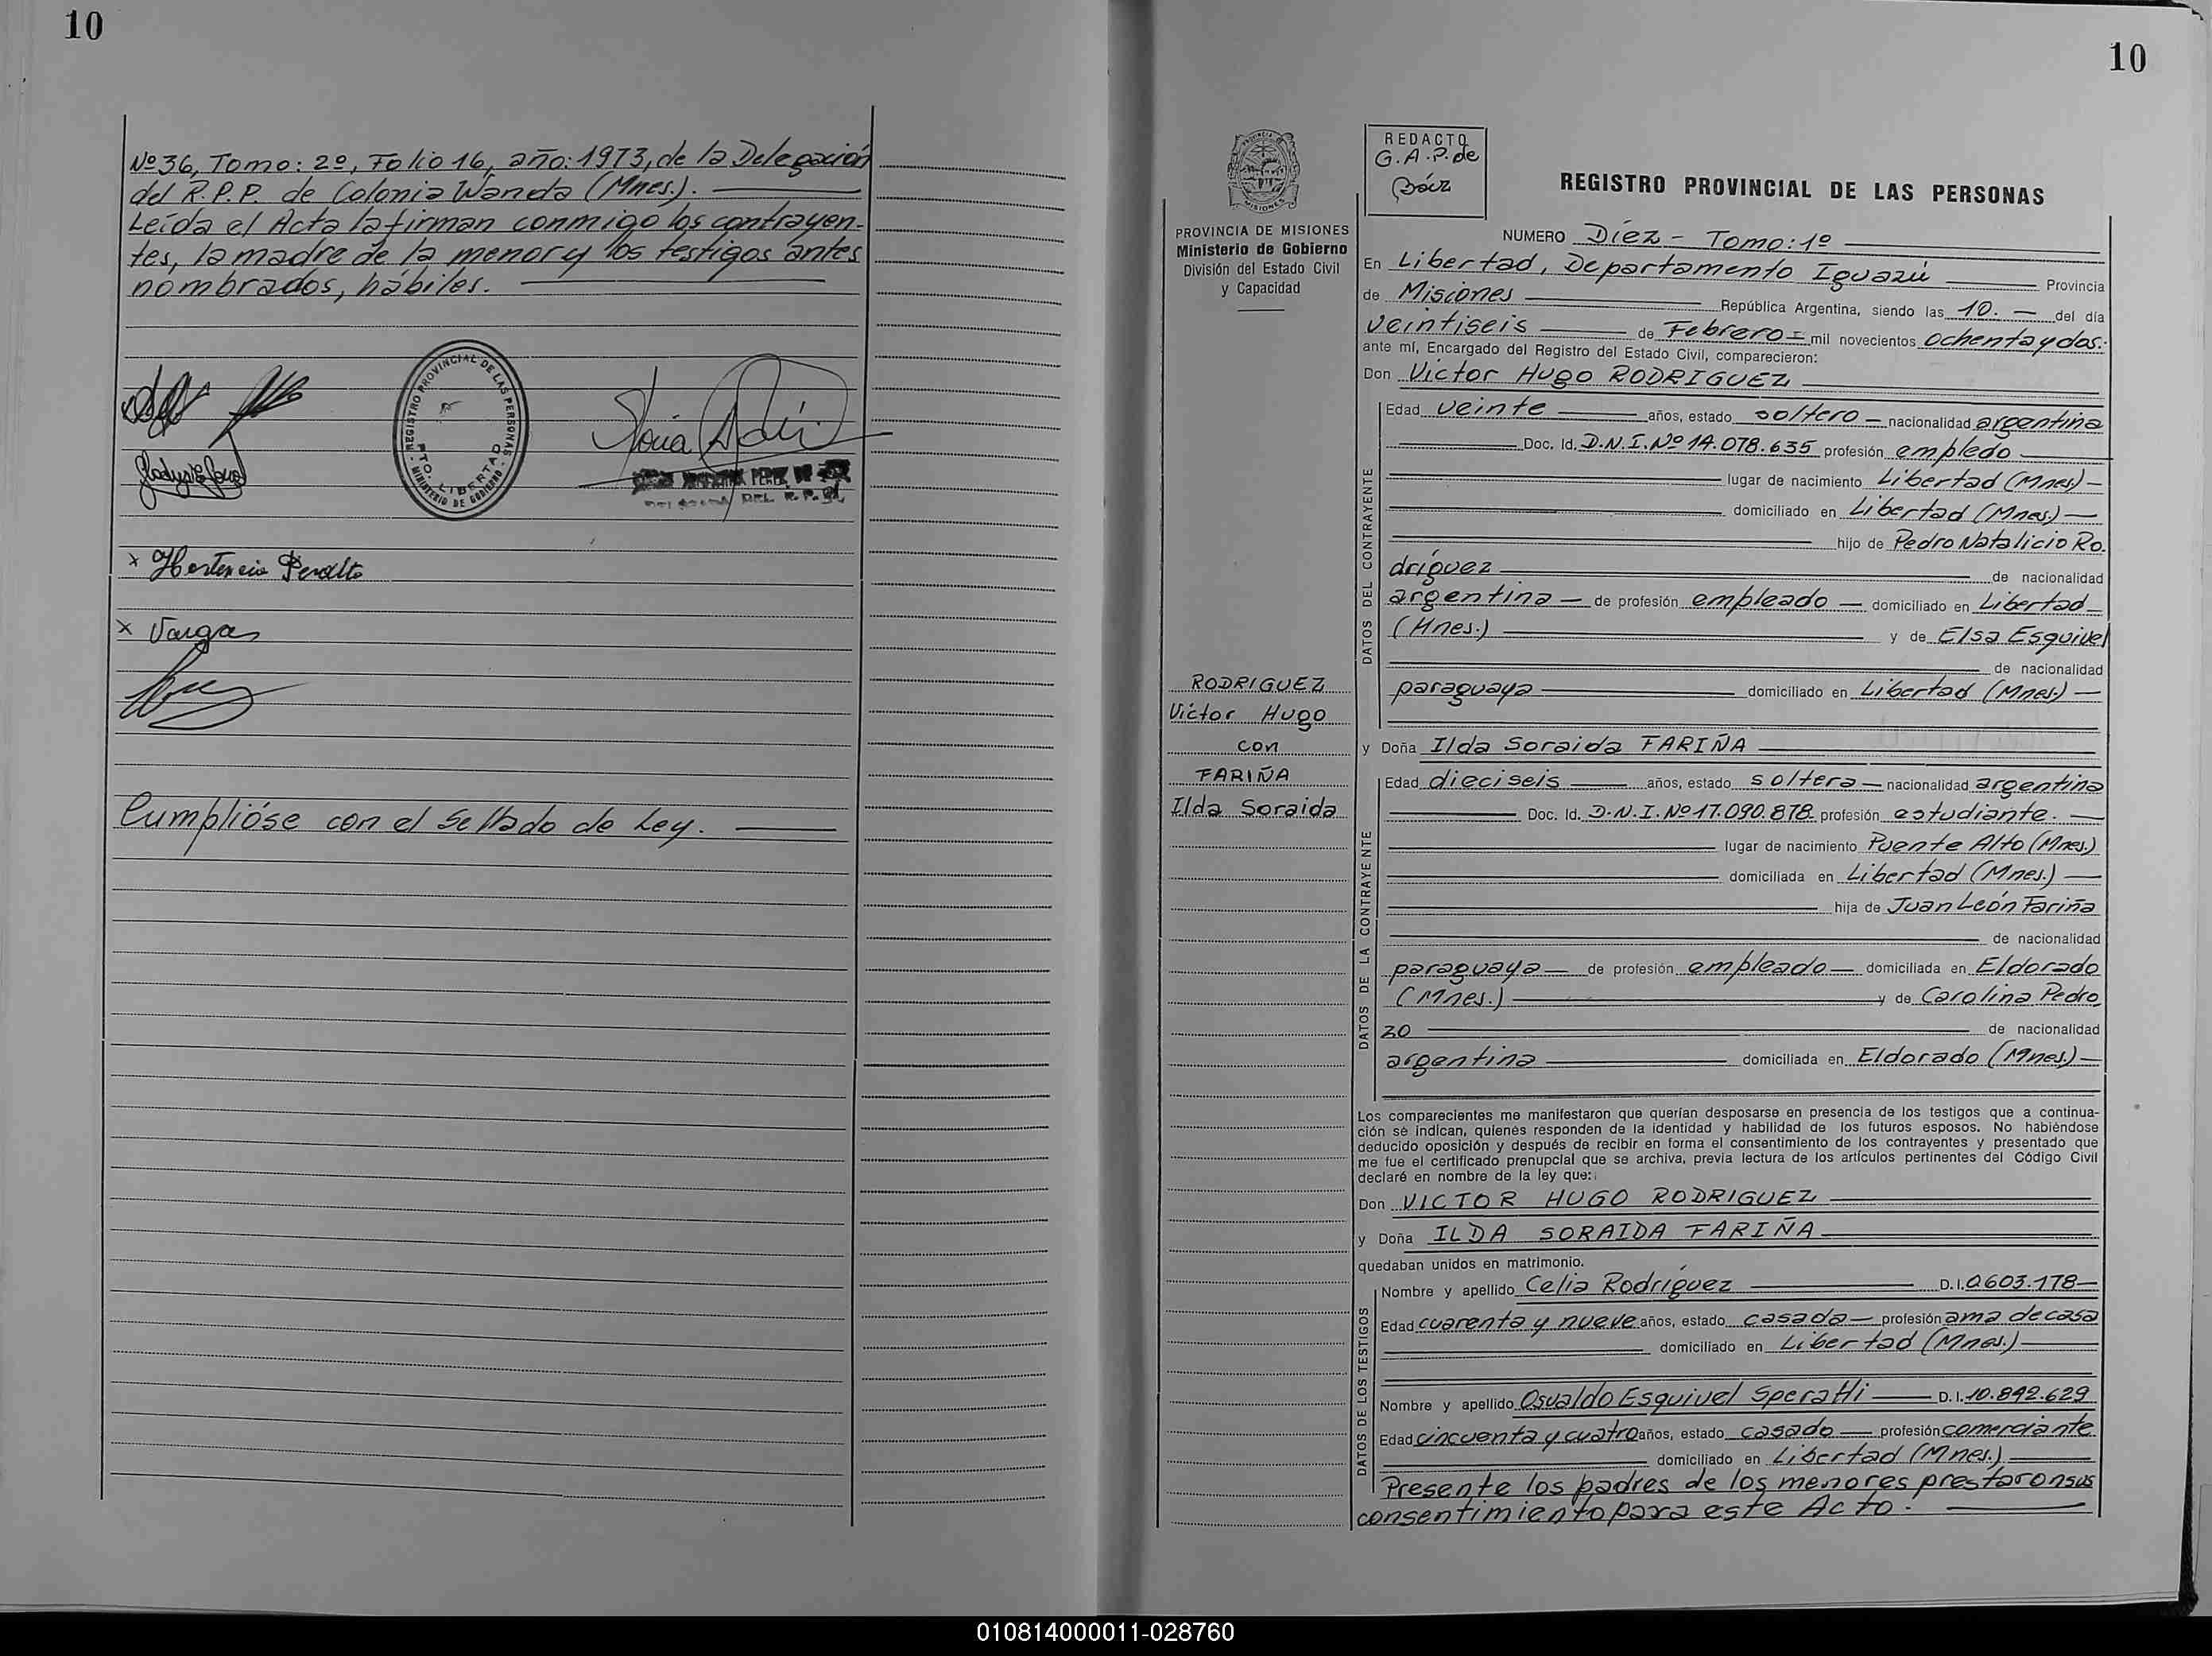 10
Nº 36, Tomo: 2º, Folio 16, año: 1973, de la Delegación
del R.P.P. de Colonia Wanda (Mnes.).
Leída el Acta la firman conmigo los contrayen-
tes, la madre de la menor y los testigos antes
nombrados, hábiles.
REGISTRO PROVINCIAL DE LAS PERSONAS
PTO. LIBERTAD
MINISTERIO DE GOBIERNO
DEL R.P.P.
x Hortencia Peralta
x Vargas
Cumplióse con el Sellado de Ley.
10
REDACTO
G.A.P. de
Báez
REGISTRO PROVINCIAL DE LAS PERSONAS
MISIONES
PROVINCIA DE MISIONES
Ministerio de Gobierno
División del Estado Civil
y Capacidad
NUMERO Diez - Tomo: 1º
En Libertad, Departamento Iguazú Provincia
de Misiones República Argentina, siendo las 10. del día
veintiseis de Febrero mil novecientos ochenta y dos.
ante mí, Encargado del Registro del Estado Civil, comparecieron:
Don Victor Hugo RODRIGUEZ
DATOS DEL CONTRAYENTE
Edad veinte años, estado soltero nacionalidad argentina
Doc. Id. D.N.I. Nº 14.078.635 profesión empledo
lugar de nacimiento Libertad (Mnes)
domiciliado en Libertad (Mnes.)
hijo de Pedro Natalicio Ro.
dríguez de nacionalidad
argentina de profesión empleado domiciliado en Libertad
(Mnes.) y de Elsa Esquivel
de nacionalidad
paraguaya domiciliado en Libertad (Mnes.)
RODRIGUEZ
Victor Hugo
con
FARIÑA
Ilda Soraida
y Doña Ilda Soraida FARIÑA
DATOS DE LA CONTRAYENTE
Edad dieciseis años, estado soltera nacionalidad argentina
Doc. Id. D.N.I. Nº 17.090.878 profesión estudiante.
lugar de nacimiento Puente Alto (Mnes.)
domiciliada en Libertad (Mnes.)
hija de Juan León Fariña
de nacionalidad
paraguaya de profesión empleado domiciliada en Eldorado
(Mnes.) y de Carolina Pedro,
zo de nacionalidad
argentina domiciliada en Eldorado (Mnes.)
Los comparecientes me manifestaron que querían desposarse en presencia de los testigos que a continua-
ción se indican, quienes responden de la identidad y habilidad de los futuros esposos. No habiéndose
deducido oposición y después de recibir en forma el consentimiento de los contrayentes y presentado que
me fue el certificado prenupcial que se archiva, previa lectura de los artículos pertinentes del Código Civil
declaré en nombre de la ley que:
Don VICTOR HUGO RODRIGUEZ
y Doña ILDA SORAIDA FARIÑA
quedaban unidos en matrimonio.
DATOS DE LOS TESTIGOS
Nombre y apellido Celia Rodríguez D.I. 0.603.178
Edad cuarenta y nueve años, estado casada profesión ama de casa
domiciliado en Libertad (Mnes.)
Nombre y apellido Osvaldo Esquivel Speratti D.I. 10.892.629
Edad cincuenta y cuatro años, estado casado profesión comerciante
domiciliado en Libertad (Mnes.)
Presente los padres de los menores prestaron sus
consentimiento para este Acto.
010814000011-028760